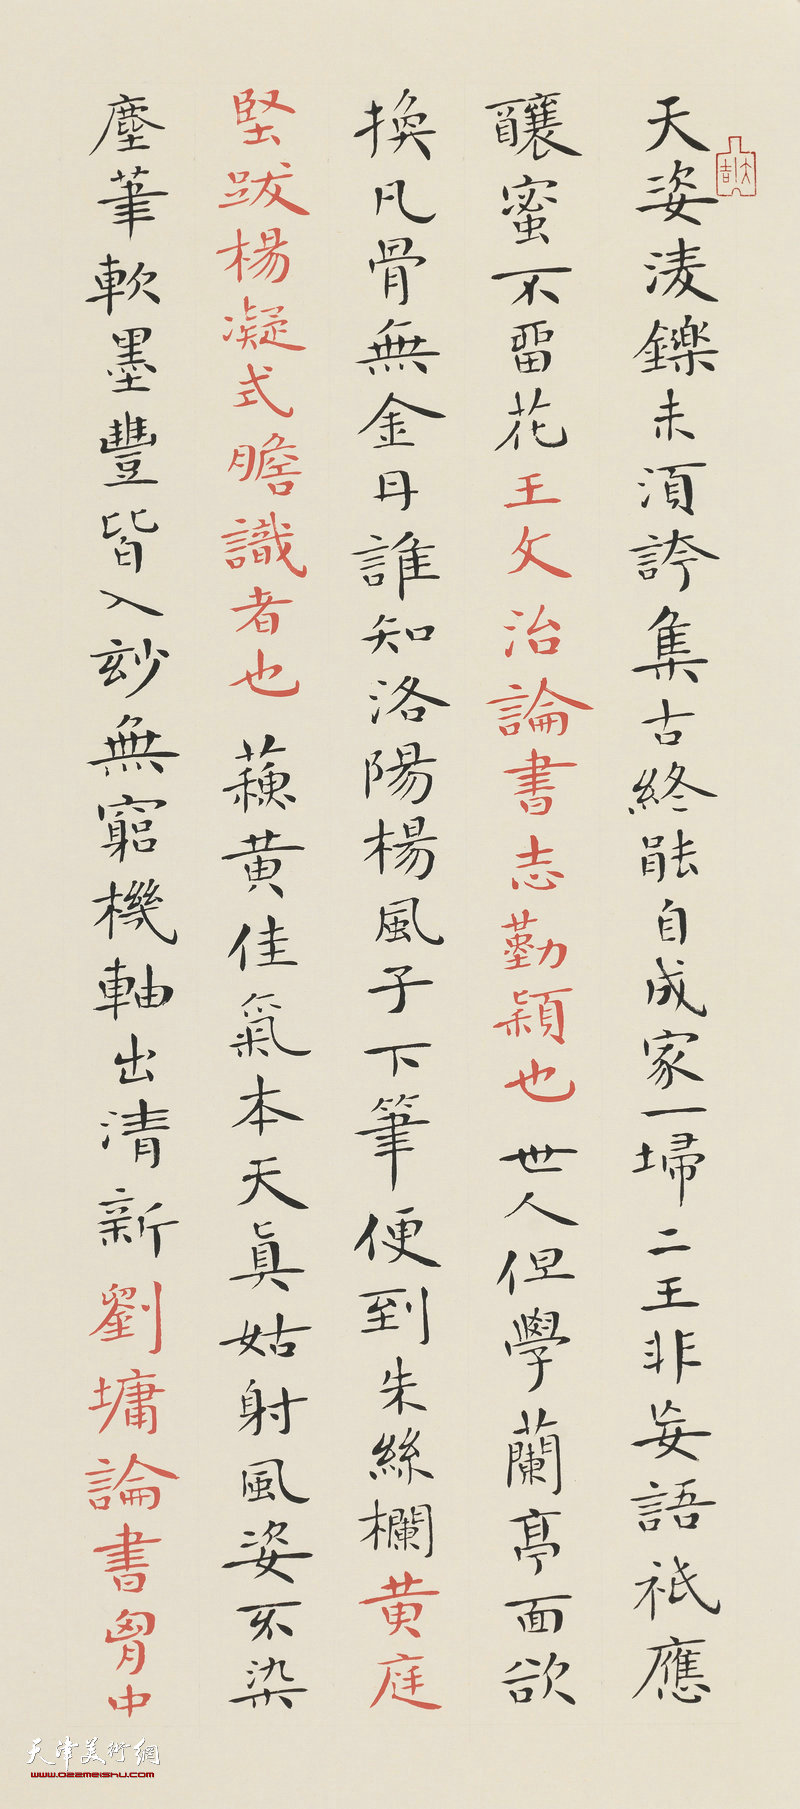 天姿凌鑠未須誇集古終能自成家一埽二王非妄語祇應
釀蜜不留花王文治論書志勤穎也世人但學蘭亭面欲
換凡骨無金丹誰知洛陽楊風子下筆便到朱絲欄黄庭
堅跋楊凝式瞻識者也蘓黄佳氣本天真姑射風姿不染
塵筆軟墨豐皆入玅無窮機軸出清新劉墉論書胷中
天津美術網
www.022meishu.com